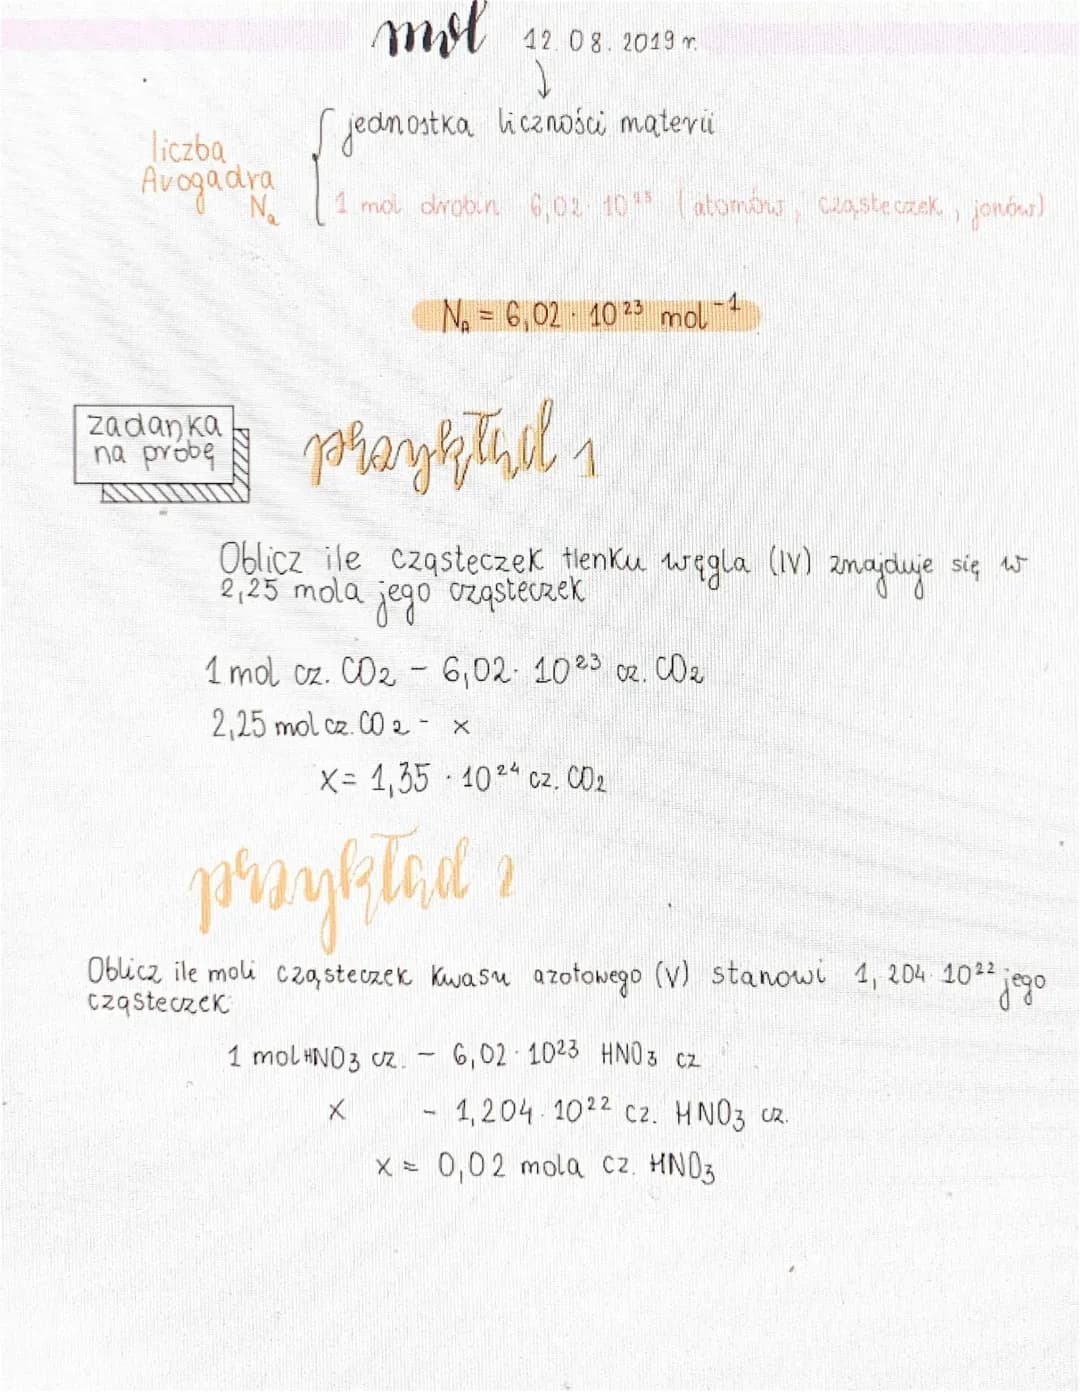 mol 12.08.2019 r.
jednostka liczności materii
liczba
Avogadra
Na
1 mol drobin 6,02·10²³ (atomów, cząsteczek, jonów)
NA = 6,02 · 10²³ mol⁻¹
zadanka
na probę
przykład 1
Oblicz ile cząsteczek tlenku węgla (IV) znajduje się w
2,25 mola jego cząsteczek
1 mol cz. CO₂ - 6,02· 10²³ cz. CO₂
2,25 mol cz. CO₂ - x
x = 1,35 · 10²⁴ cz. CO₂
przykład 2
Oblicz ile moli cząsteczek kwasu azotowego (V) stanowi 1,204·10²² jego
cząsteczek
1 mol HNO₃ cz. - 6,02 · 10²³ HNO₃ cz
x - 1,204·10²² cz. HNO₃ cz.
x = 0,02 mola cz. HNO₃